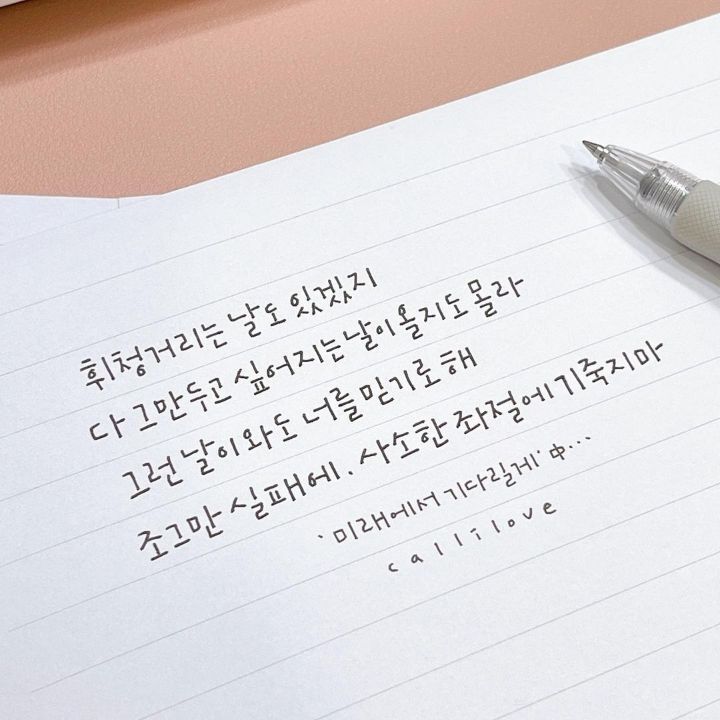 휘청거리는 날도 있겠지
다 그만두고 싶어지는 날이 올지도 몰라
그런 날이 와도 너를 믿기로 해
조그만 실패에. 사소한 좌절에 기죽지마
'미래에서 기다릴게' 中...
callilove